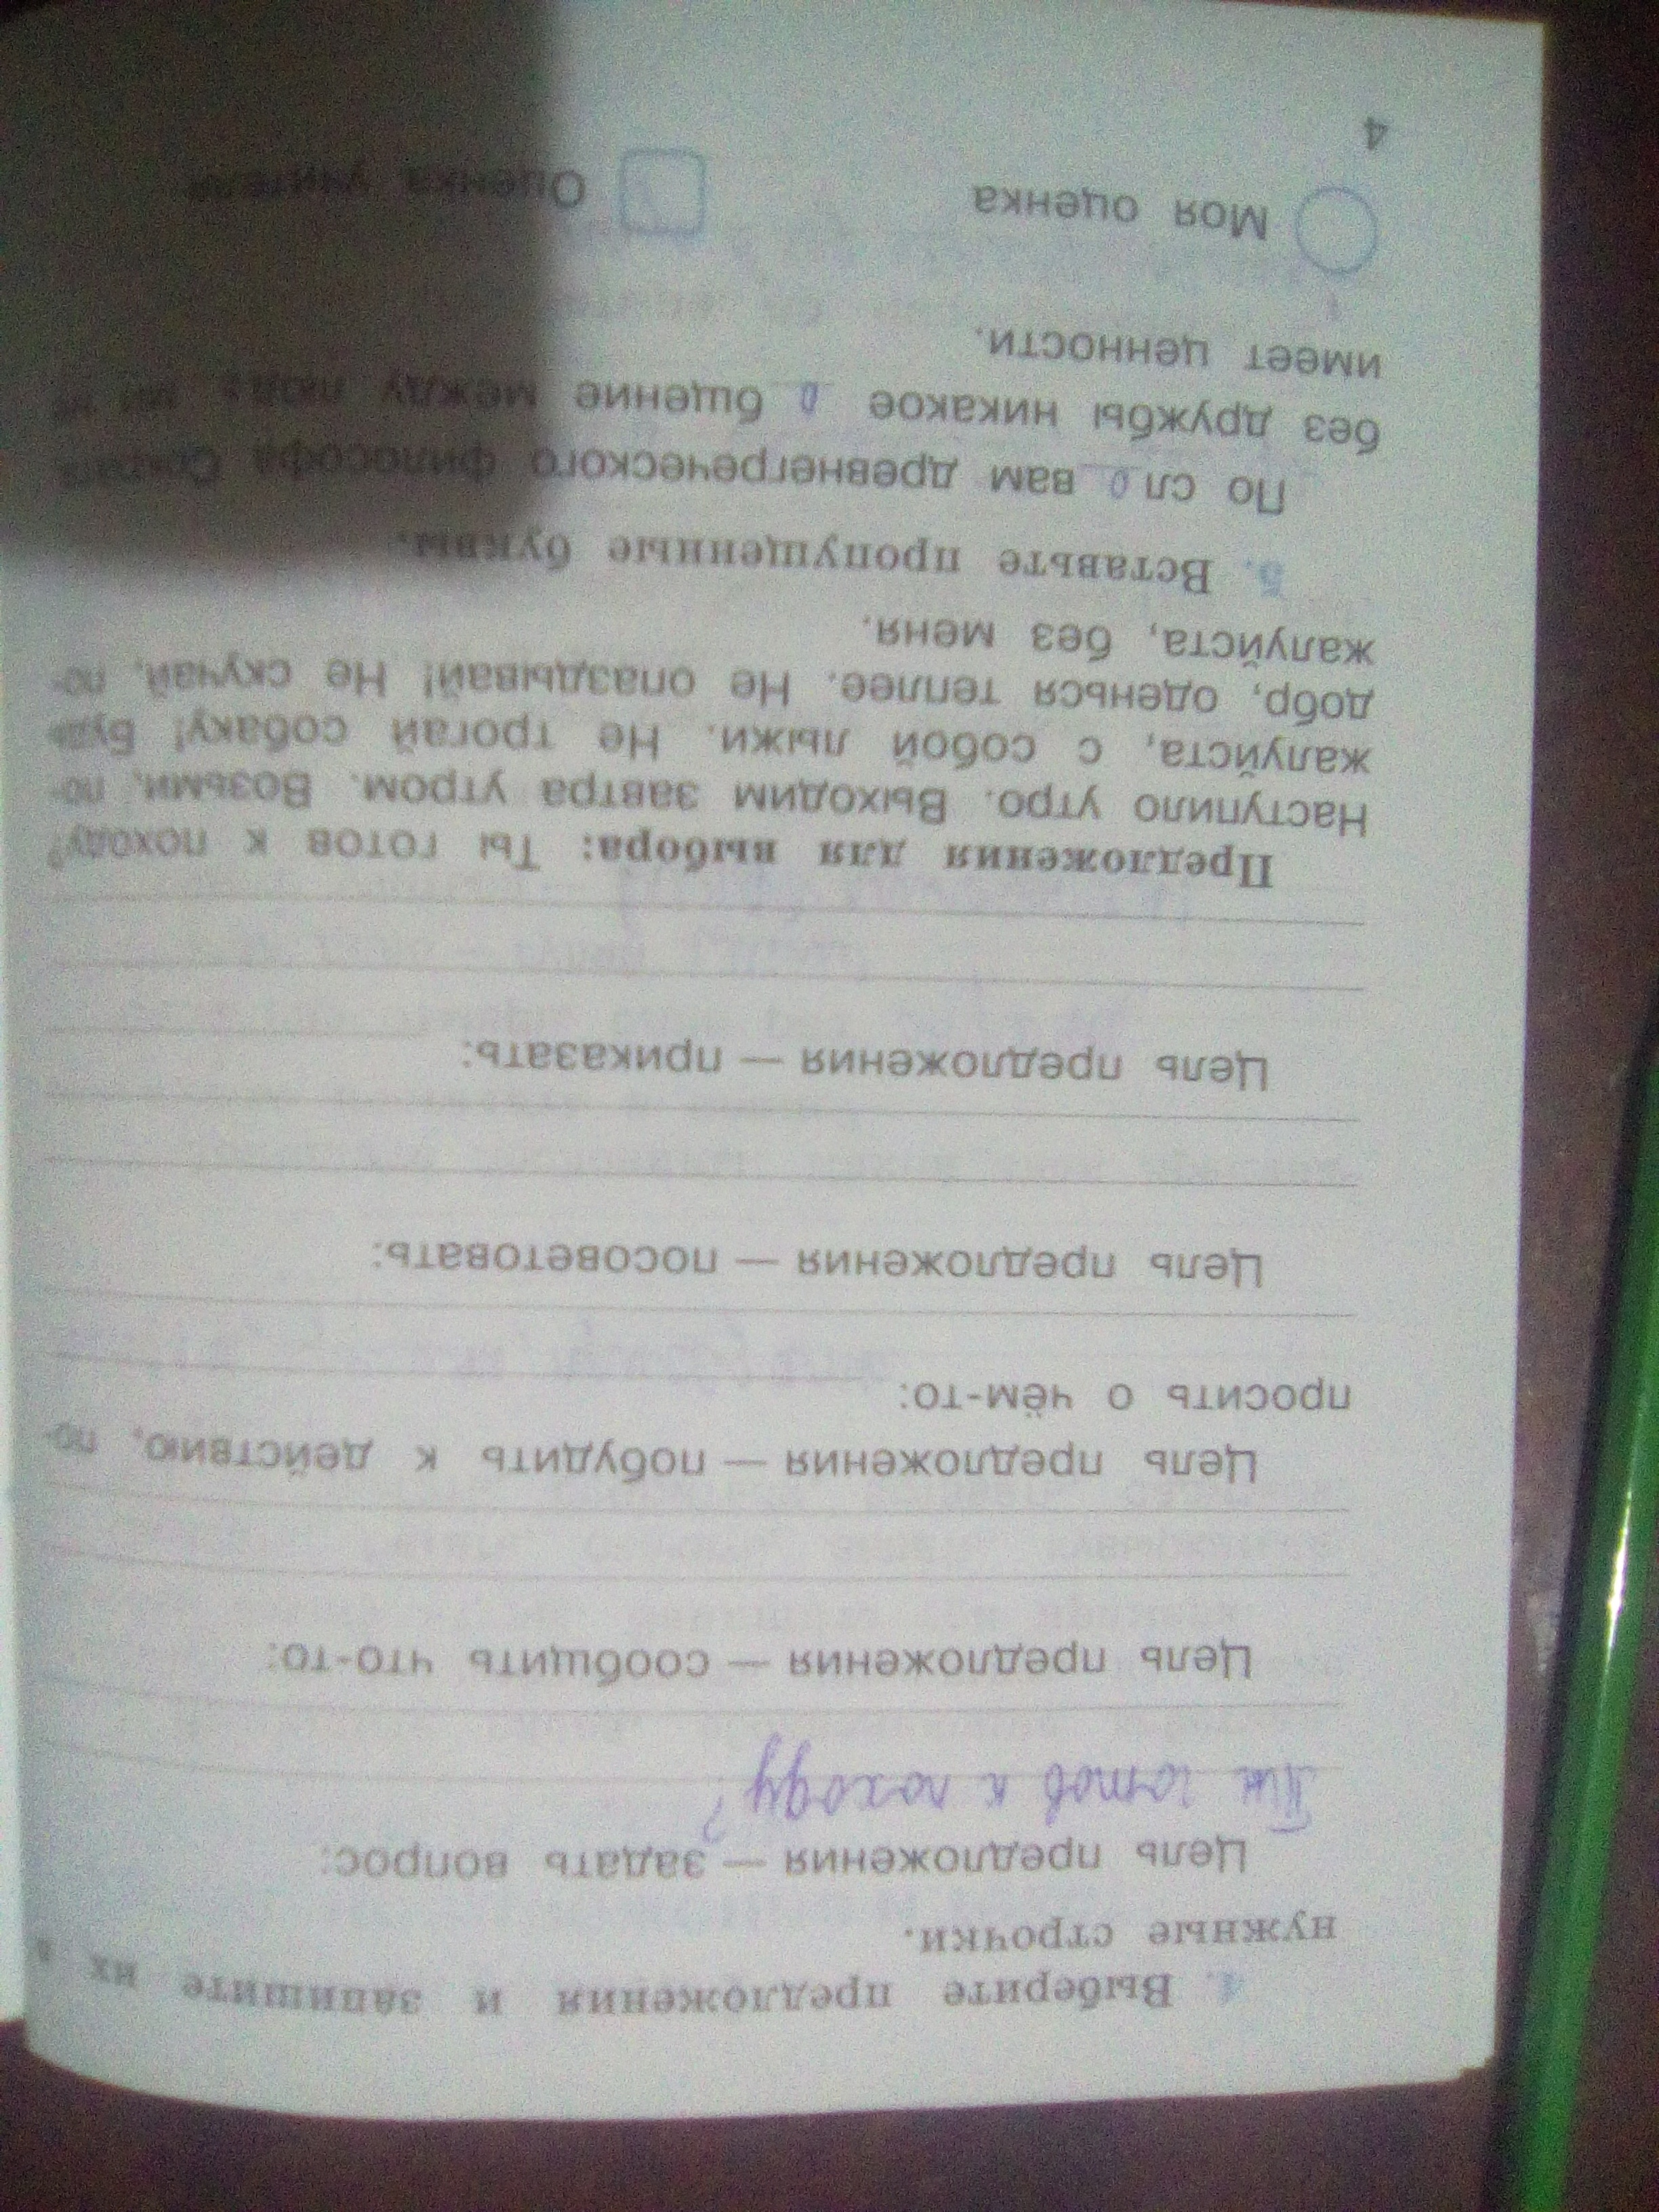 4. Выберите предложения и запишите их в
нужные строчки.
Цель предложения — задать вопрос:
Ты готов к походу?
Цель предложения — сообщить что-то:
Цель предложения — побудить к действию, по-
просить о чём-то:
Цель предложения — посоветовать:
Цель предложения — приказать:
Предложения для выбора: Ты готов к походу?
Наступило утро. Выходим завтра утром. Возьми, по-
жалуйста, с собой лыжи. Не трогай собаку! Будь
добр, оденься теплее. Не опаздывай! Не скучай, по-
жалуйста, без меня.
5. Вставьте пропущенные буквы.
По сл о вам древнегреческого философа Сократа
без дружбы никакое о бщение между людь ми не
имеет ценности.
Моя оценка Оценка учителя
4